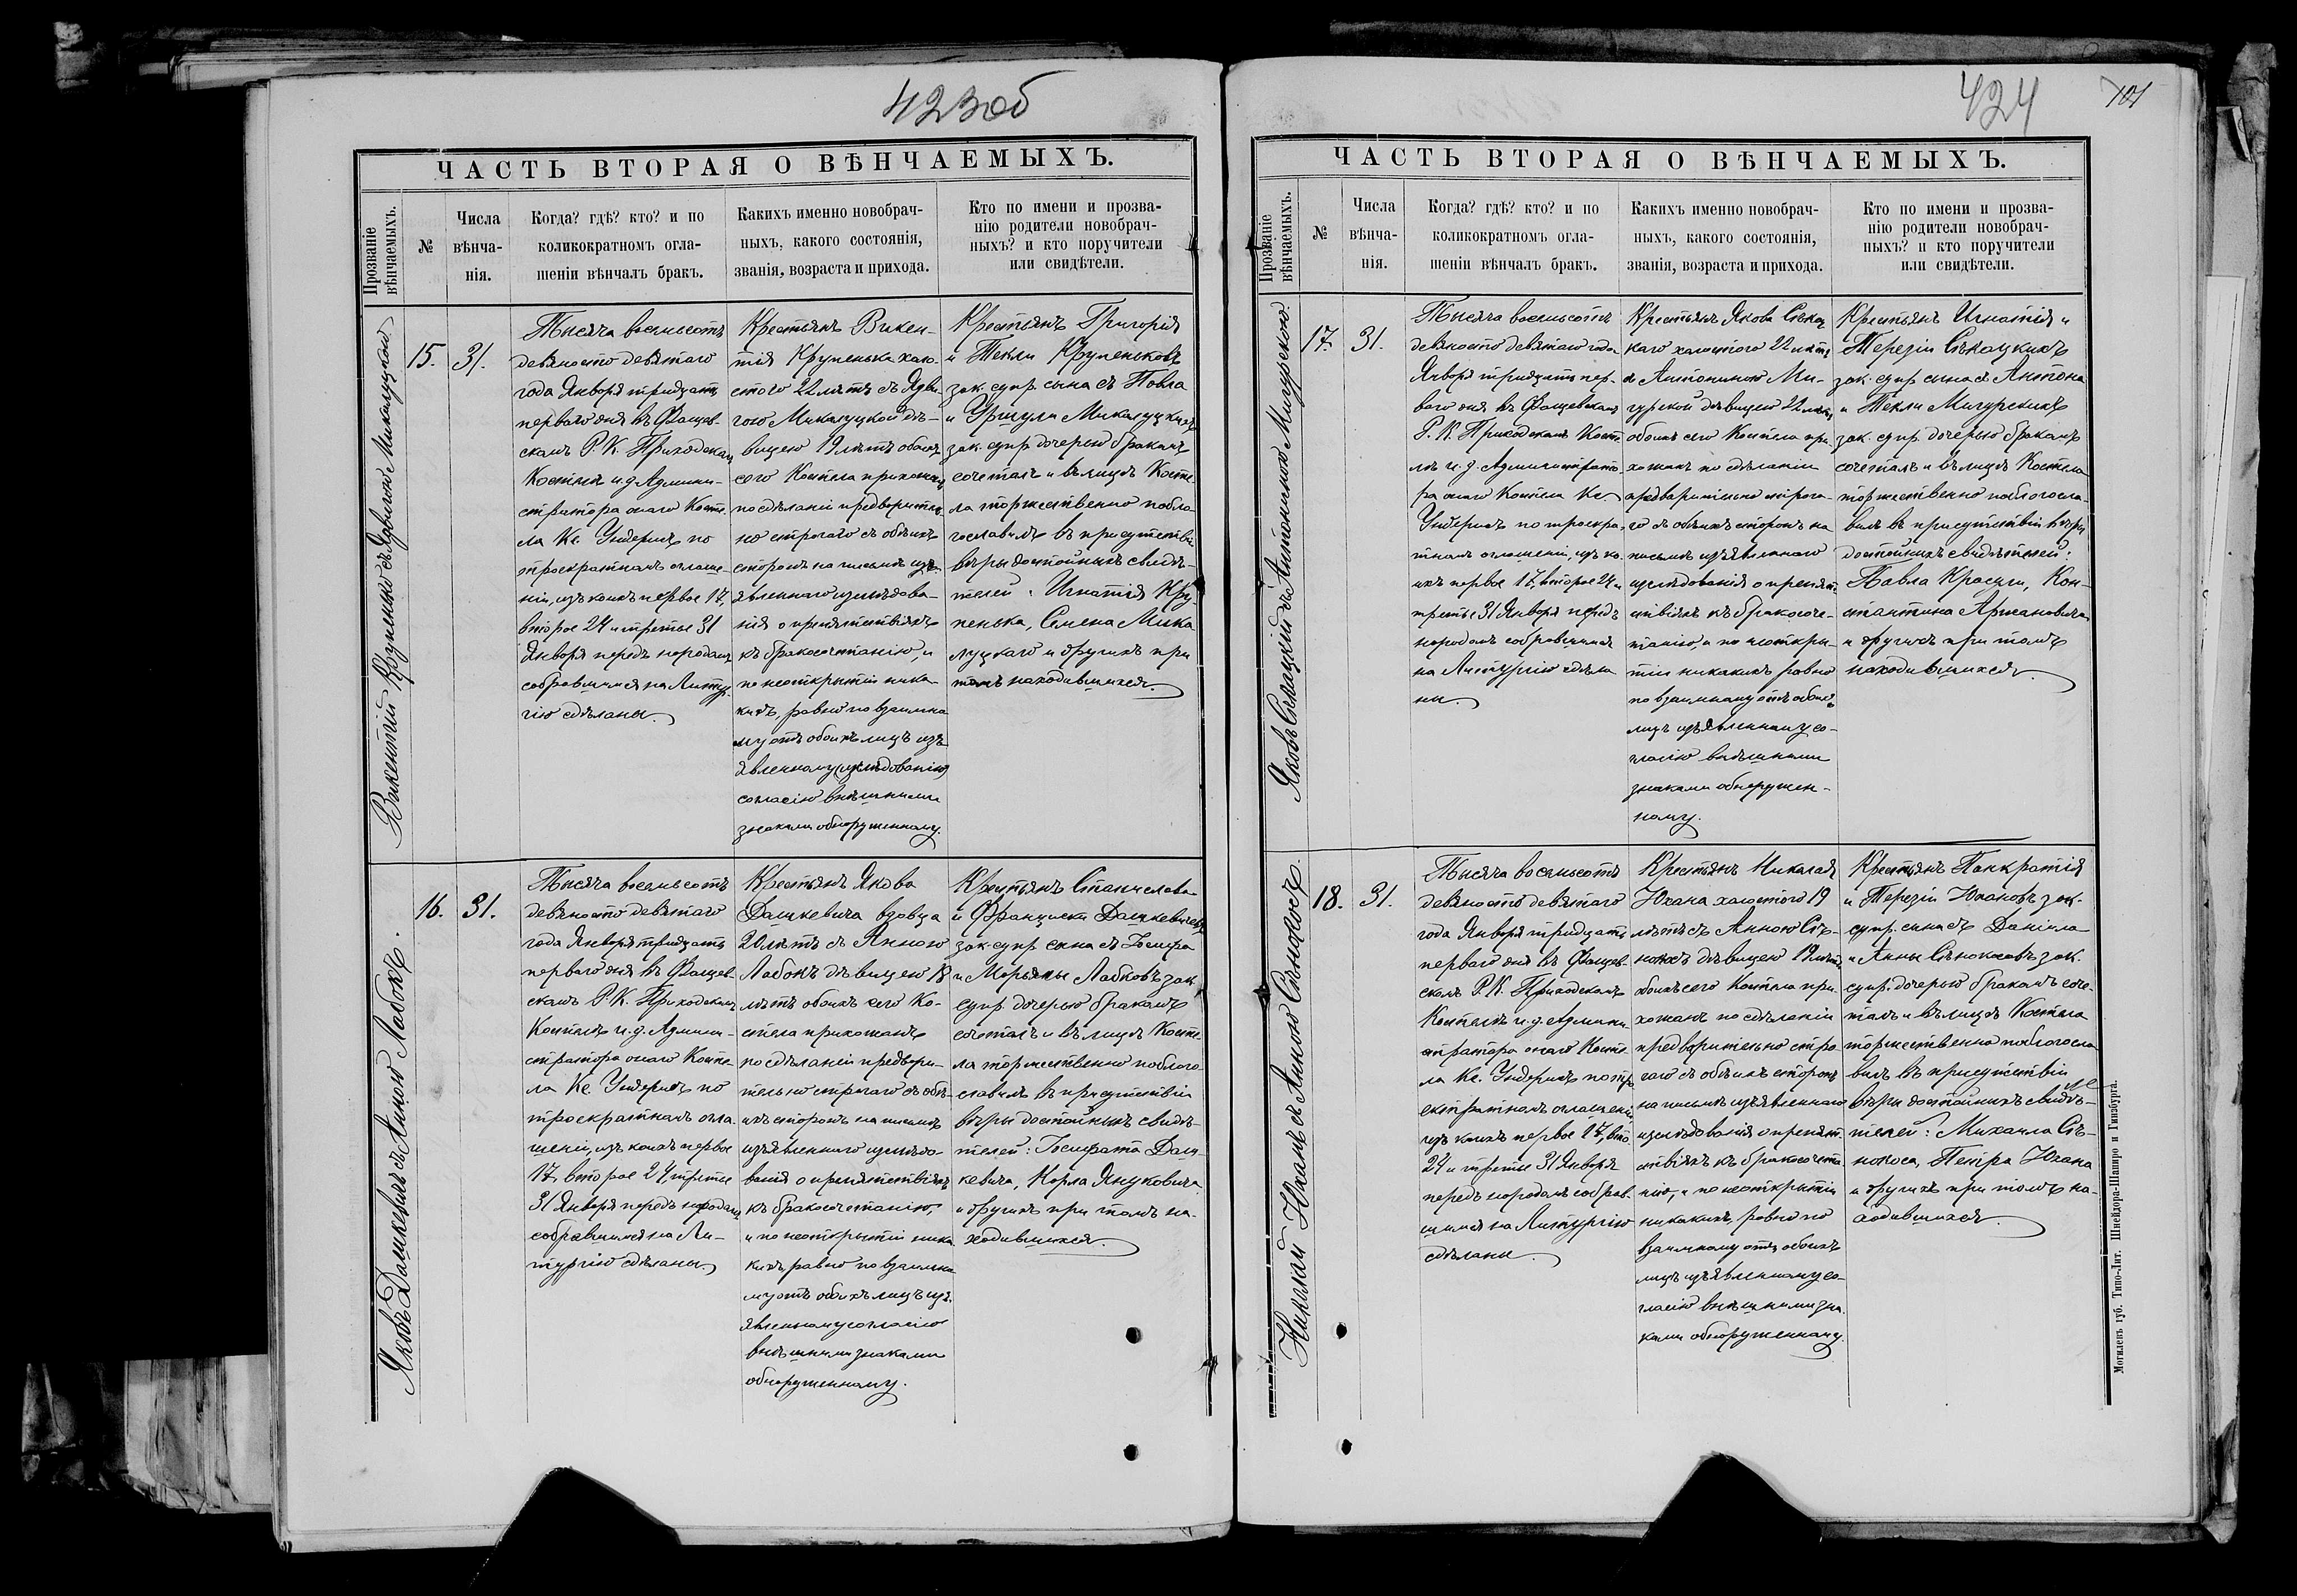 423об
ЧАСТЬ ВТОРАЯ О ВѢНЧАЕМЫХЪ.
Прозваніе
вѣнчаемыхъ.
№
Числа
вѣнча-
нія.
Когда? гдѣ? кто? и по
коликократномъ огла-
шеніи вѣнчалъ бракъ.
Какихъ именно новобрач-
ныхъ, какого состоянія,
званія, возраста и прихода.
Кто по имени и прозва-
нію родители новобрач-
ныхъ? и кто поручители
или свидѣтели.
Викентій Крупенько съ Ядвигою Микалуцкою
15.
31.
Тысяча восемьсотъ
девяносто девятаго
года Января тридцать
перваго дня въ Фащев-
скомъ Р. К. Приходскомъ
Костелѣ и.д. Админи-
стратора онаго Косте-
ла Кс. Ундерисъ по
троекратномъ оглаше-
ніи, изъ коихъ первое 17,
второе 24 и третье 31
Января передъ народомъ
собравшимся на Литур-
гію сдѣланы.
Крестьянъ Викен-
тія Крупенька холо-
стого 22 лѣтъ съ Ядви-
гою Микалуцкой дѣ-
вицею 19 лѣтъ обоихъ
сего Костела прихожанъ
по сдѣланіи предваритель-
но строгаго съ обѣихъ
сторонъ на письмѣ изъ-
явленнаго изслѣдова-
нія о препятствіяхъ
къ бракосочетанію, и
по неоткрытіи ника-
кихъ, равно по взаимно-
му отъ обоихъ лицъ изъ-
явленному изслѣдованію
согласію внѣшними
знаками обнаруженному.
Крестьянъ Григорія
и Текли Крупеньковъ
зак. супр. сына съ Павла
и Уршули Микалуцкихъ
зак. супр. дочерью бракомъ
сочеталъ и въ лицѣ Косте-
ла торжественно побла-
гославилъ въ присутствіи
вѣры достойныхъ свидѣ-
телей: Игнатія Кру-
пенька, Семена Мика-
луцкаго и другихъ при
томъ находившихся.
Яковъ Дашкевичъ съ Анною Лабокъ.
16.
31.
Тысяча восемьсотъ
девяносто девятаго
года Января тридцать
перваго дня въ Фащев-
скомъ Р. К. Приходскомъ
Костелѣ и.д. Админи-
стратора онаго Косте-
ла Кс. Ундерисъ по
троекратномъ огла-
шеніи, изъ коихъ первое
17, второе 24, третье
31 Января передъ народомъ
собравшимся на Ли-
тургію сдѣланы.
Крестьянъ Якова
Дашкевича вдовца
20 лѣтъ съ Анною
Лабокъ дѣвицею 18
лѣтъ обоихъ сего Ко-
стела прихожанъ
по сдѣланіи предвари-
тельно строгаго съ обѣ-
ихъ сторонъ на письмѣ
изъявленнаго изслѣдо-
ванія о препятствіяхъ
къ бракосочетанію,
и по неоткрытіи ника-
кихъ, равно по взаимно-
му отъ обоихъ лицъ изъ-
явленному согласію
внѣшними знаками
обнаруженному.
Крестьянъ Станислава
и Франциски Дашкевичевъ
зак. супр. сына съ Іосифа
и Марьяны Лабковъ зак.
супр. дочерью бракомъ
сочеталъ и въ лицѣ Косте-
ла торжественно поблаго-
славилъ въ присутствіи
вѣры достойныхъ свидѣ-
телей: Іосифата Даш-
кевича, Карла Януковича
и другихъ при томъ на-
ходившихся.
424
ЧАСТЬ ВТОРАЯ О ВѢНЧАЕМЫХЪ.
Прозваніе
вѣнчаемыхъ.
№
Числа
вѣнча-
нія.
Когда? гдѣ? кто? и по
коликократномъ огла-
шеніи вѣнчалъ бракъ.
Какихъ именно новобрач-
ныхъ, какого состоянія,
званія, возраста и прихода.
Кто по имени и прозва-
нію родители новобрач-
ныхъ? и кто поручители
или свидѣтели.
Яковъ Сѣкацкій съ Антониною Мигурскою.
17.
31.
Тысяча восемьсотъ
девяносто девятаго года
Января тридцать пер-
ваго дня въ Фащевскомъ
Р. К. Приходскомъ Косте-
лѣ и.д. Администрато-
ра онаго Костела Кс.
Ундерисъ по троекра-
тномъ оглашеніи, изъ ко-
ихъ первое 17, второе 24 и
третье 31 Января передъ
народомъ собравшимся
на Литургію сдѣла-
ны.
Крестьянъ Якова Сѣкац-
каго холостого 22 лѣтъ
съ Антониною Ми-
гурской дѣвицею 22 лѣтъ
обоихъ сего Костела при-
хожанъ по сдѣланіи
предварительно строга-
го съ обѣихъ сторонъ на
письмѣ изъявленнаго
изслѣдованія о препят-
ствіяхъ къ бракосоче-
танію, и по неоткры-
тіи никакихъ, равно
по взаимному отъ обоихъ
лицъ изъявленному со-
гласію внѣшними
знаками обнаружен-
ному.
Крестьянъ Игнатія и
Терезіи Сѣкацкихъ
зак. супр. сына съ Антона
и Текли Мигурскихъ
зак. супр. дочерью бракомъ
сочеталъ и въ лицѣ Костела
торжественно поблагосла-
вилъ въ присутствіи вѣры
достойныхъ свидѣтелей:
Павла Красуцк, Кон-
стантина Аржановича
и другихъ при томъ
находившихся.
Николай Юханъ съ Анною Сѣнокосъ.
18.
31.
Тысяча восемьсотъ
девяносто девятаго
года Января тридцать
перваго дня въ Фащев-
скомъ Р. К. Приходскомъ
Костелѣ и.д. Админи-
стратора онаго Косте-
ла Кс. Ундерисъ по тро-
екратномъ оглашеніи
изъ коихъ первое 17, вто.
24 и третье 31 Января
передъ народомъ собрав-
шимся на Литургію
сдѣланы.
Крестьянъ Николая
Юхана холостого 19
лѣтъ съ Анною Сѣ-
нокосъ дѣвицею 19 лѣтъ
обоихъ сего Костела при-
хожанъ по сдѣланіи
предварительно стро-
гаго съ обѣихъ сторонъ
на письмѣ изъявленнаго
изслѣдованія о препят-
ствіяхъ къ бракосочета-
нію, и по неоткрытіи
никакихъ, равно по
взаимному отъ обоихъ
лицъ изъявленному со-
гласію внѣшними зна-
ками обнаруженному.
Крестьянъ Панкратія
и Терезіи Юхановъ зак.
супр. сына съ Даніила
и Анны Сѣнокосовъ зак.
супр. дочерью бракомъ соче-
талъ и въ лицѣ Костела
торжественно поблагосла-
вилъ въ присутствіи
вѣры достойныхъ свидѣ-
телей: Михаила Сѣ-
нокоса, Петра Юхана
и другихъ при томъ на-
ходившихся.
Могилевъ губ. Типо-Лит. Шнейдера-Шапиро и Гинзбурга.